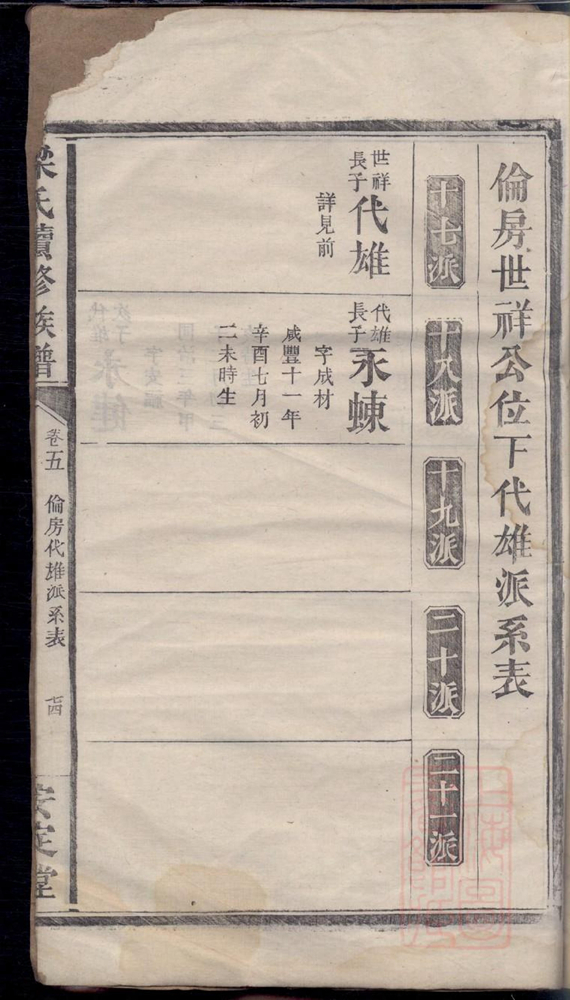 倫房世祥公位下代雄派系表
十七派
十八派
十九派
二十派
二十一派
世祥
長子
代雄
詳見前
代雄
長子
永蝀
字成材
咸豐十一年
辛酉七月初
二未時生
梁氏續修族譜
卷五
倫房代雄派系表
安定堂